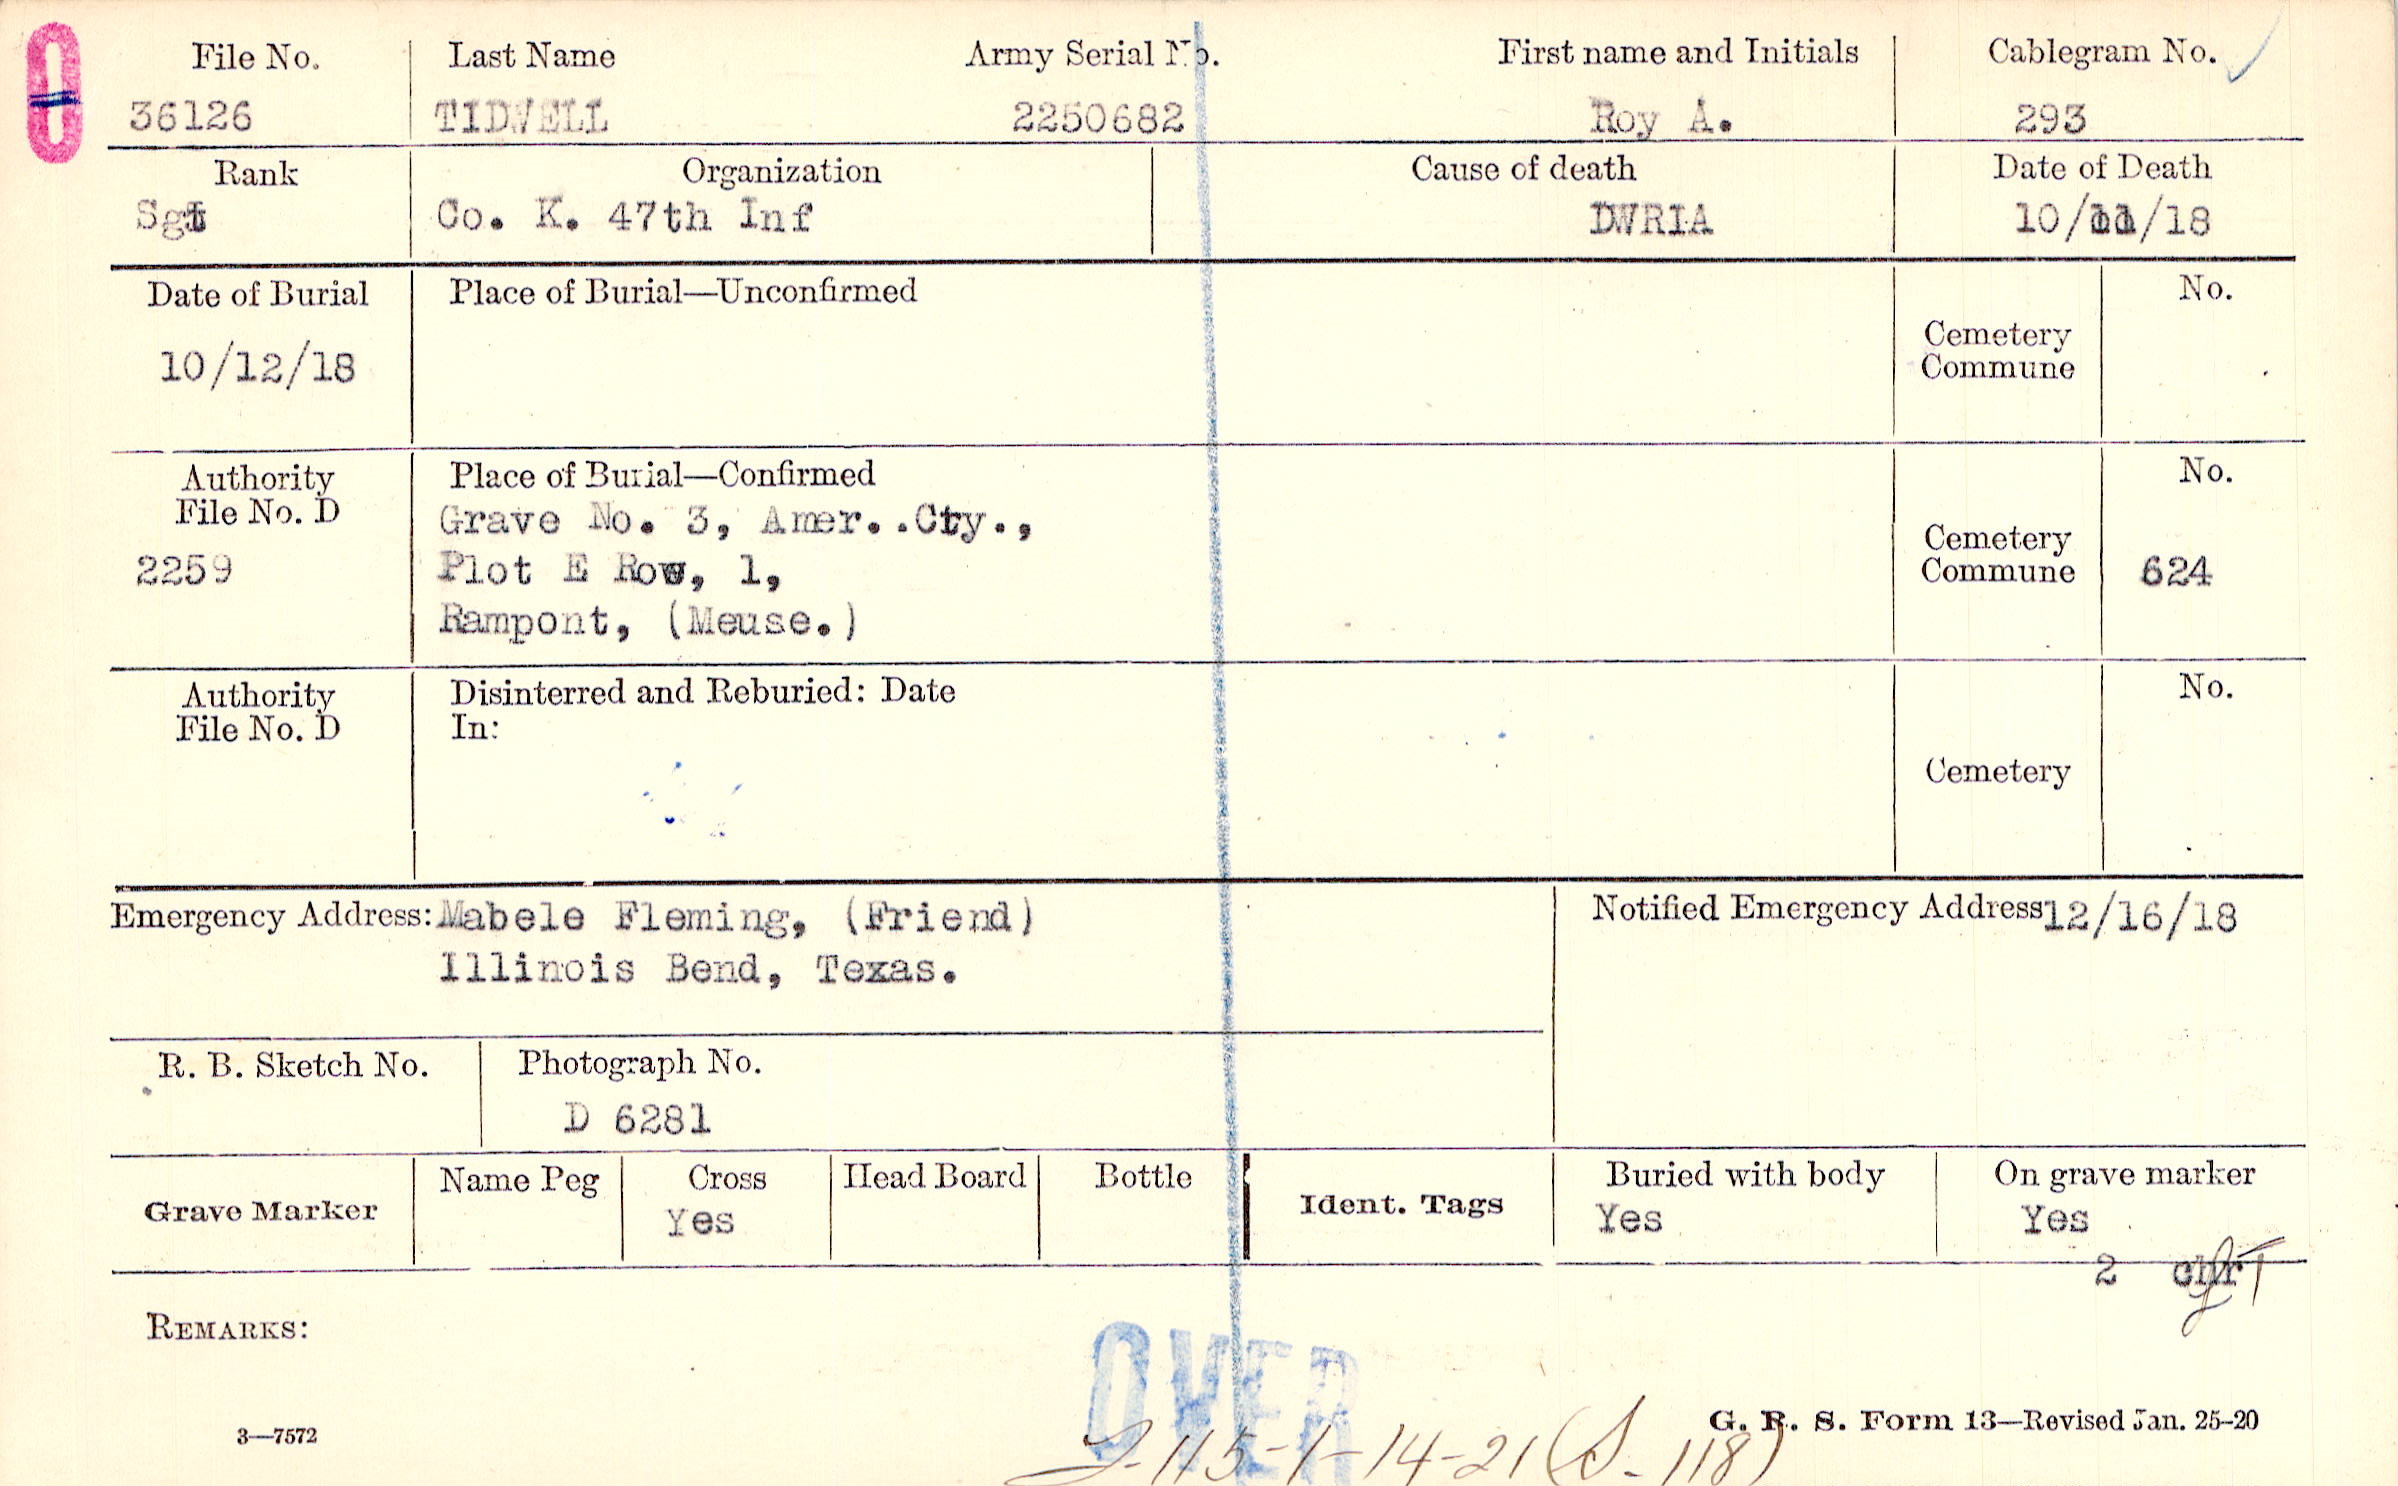 File No. Last Name Army Serial No. First name and Initials Cablegram No.
36126 TIDWELL 2250682 Roy A. 293
Rank Organization Cause of death Date of Death
Sgt Co. K. 47th Inf DWRIA 10/11/18
Date of Burial Place of Burial—Unconfirmed No.
10/12/18 Cemetery
Commune
Authority Place of Burial—Confirmed No.
File No. D Grave No. 3, Amer. .Cty.,
Cemetery
2259 Plot E Row, 1, Commune 624
Rampont, (Meuse.)
Authority Disinterred and Reburied: Date No.
File No. D In:
Cemetery
Emergency Address: Mabele Fleming, (Friend) Notified Emergency Address 12/16/18
Illinois Bend, Texas.
R. B. Sketch No. Photograph No.
D 6281
Name Peg Cross Head Board Bottle Buried with body On grave marker
Grave Marker Yes Ident. Tags Yes Yes
2
REMARKS:
OVER
G. R. S. Form 13—Revised Jan. 25-20
3—7572
115-1-14-21 (S-118)